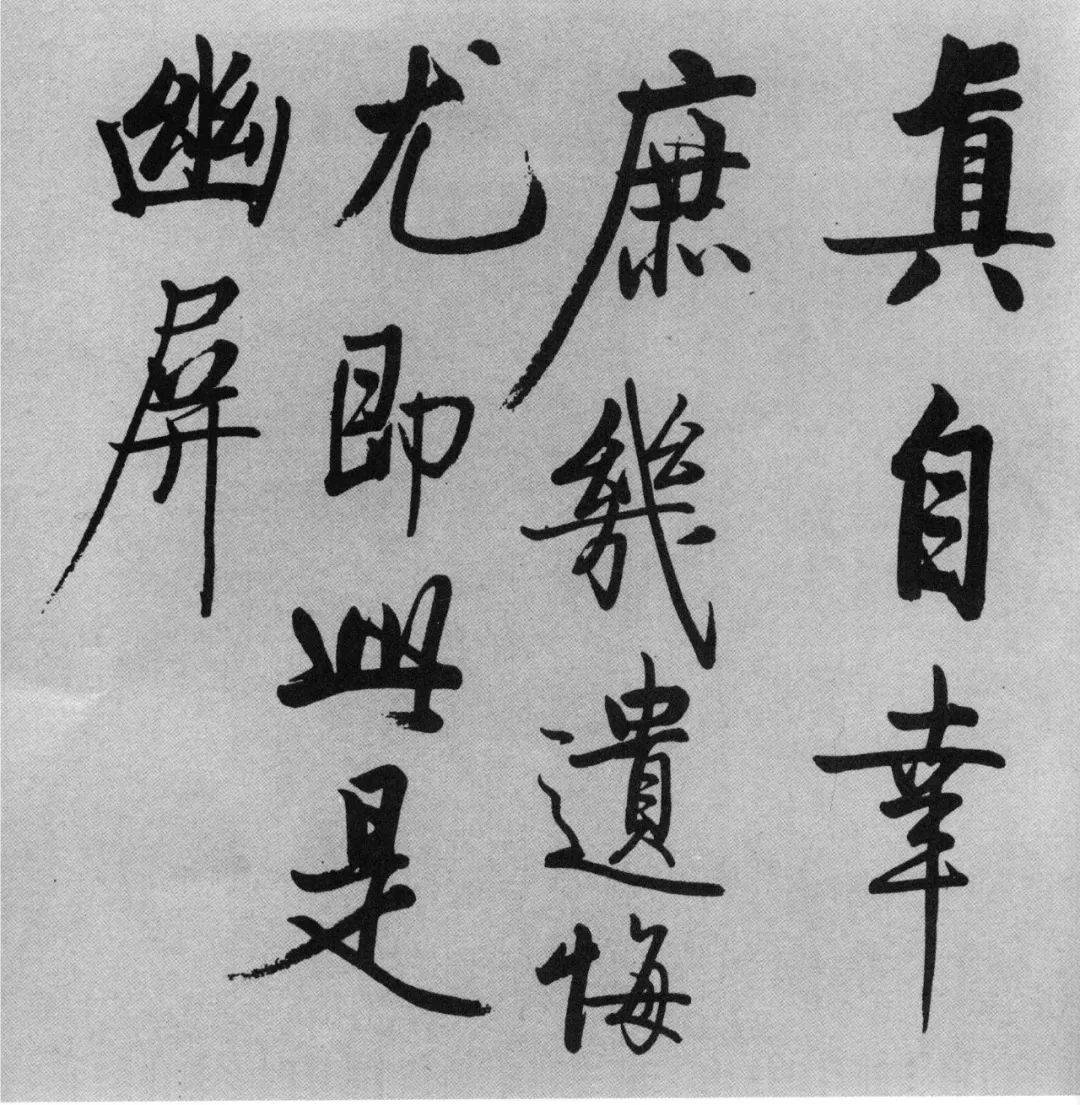 真自幸
庶幾遺悔
尤即此是
幽屏